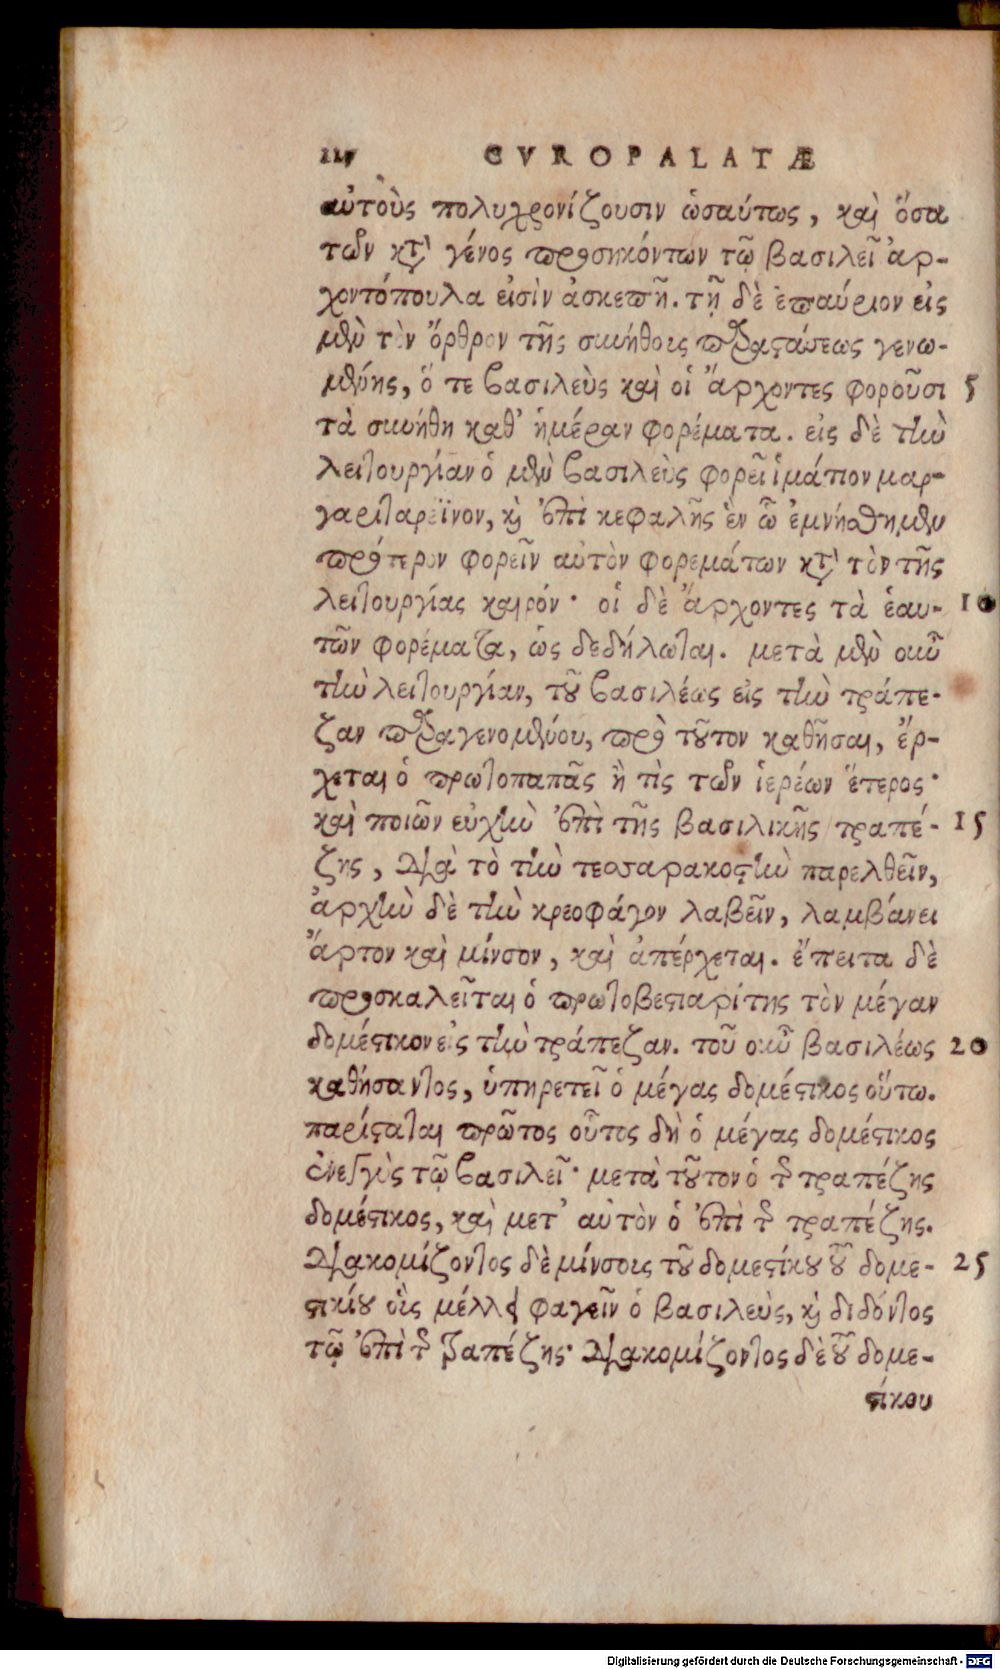 CVROPALATÆ
αὐτοὺς πολυχρονίζουσιν ὡσαύτως, καὶ ὅσα
τῶν κατὰ γένος προσηκόντων τῷ βασιλεῖ ἀρ-
χοντόπουλα εἰσὶν ἀσκεπῆ. τῇ δὲ ἐπαύριον εἰς
μὲν τὸν ὄρθρον τῆς συνήθους παραστάσεως γενο-
μένης, ὅ τε βασιλεὺς καὶ οἱ ἄρχοντες φοροῦσι 5
τὰ συνήθη καθ' ἡμέραν φορέματα. εἰς δὲ τὴν
λειτουργίαν ὁ μὲν βασιλεὺς φορεῖ ἱμάτιον μαρ-
γαριταρέϊνον, καὶ ἐπὶ κεφαλῆς ἓν ὧ ἐμνήσθημεν
πρότερον φορεῖν αὐτὸν φορεμάτων κατὰ τὸν τῆς
λειτουργίας καιρόν· οἱ δὲ ἄρχοντες τὰ ἑαυ- 10
τῶν φορέματα, ὡς δεδήλωται. μετὰ μὲν οὖν
τὴν λειτουργίαν, τοῦ βασιλέως εἰς τὴν τράπε-
ζαν παραγενομένου, πρὸ τοῦτον καθῆσαι, ἔρ-
χεται ὁ πρωτοπαπᾶς ἢ τὶς τῶν ἱερέων ἕτερος·
καὶ ποιῶν εὐχὴν ἐπὶ τῆς βασιλικῆς τραπέ- 15
ζης, διὰ τὸ τὴν τεσσαρακοστὴν παρελθεῖν,
ἀρχὴν δὲ τὴν κρεοφάγον λαβεῖν, λαμβάνει
ἄρτον καὶ μίνσον, καὶ ἀπέρχεται. ἔπειτα δὲ
προσκαλεῖται ὁ πρωτοβεστιαρίτης τὸν μέγαν
δομέστικον εἰς τὴν τράπεζαν. τοῦ οὖν βασιλέως 20
καθήσαντος, ὑπηρετεῖ ὁ μέγας δομέστικος οὕτω.
παρίσταται πρῶτος οὗτος δὴ ὁ μέγας δομέστικος
ἐνεγγὺς τῷ βασιλεῖ· μετὰ τοῦτον ὁ τῆς τραπέζης
δομέστικος, καὶ μετ' αὐτὸν ὁ ἐπὶ τῆς τραπέζης.
διακομίζοντος δὲ μίνσους τοῦ δομεστίκου τοῦ δομε- 25
στικίου οἷς μέλλει φαγεῖν ὁ βασιλεὺς, καὶ διδόντος
τῷ ἐπὶ τῆς τραπέζης· διακομίζοντος δὲ τοῦ δομε-
στίκου
Digitalisierung gefördert durch die Deutsche Forschungsgemeinschaft - DFG